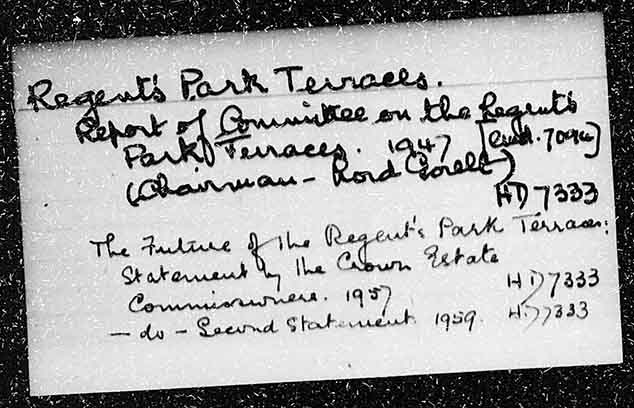 Regent's Park Terraces.
Report of Committee on the Regent's
Park Terraces. 1947 [Cmd. 7094]
(Chairman - Lord Gorell)
HD7333
The Future of the Regent's Park Terraces:
Statement by the Crown Estate
Commissioners. 1957 HD7333
- do - Second Statement 1959. HD7333